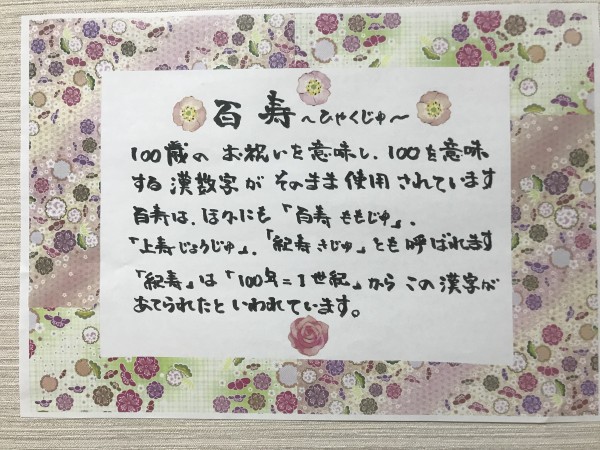 百寿～ひゃくじゅ～
100歳の お祝いを意味し、100を意味
する漢数字が そのまま使用されています
百寿は、ほかにも「百寿 ももじゅ」、
「上寿じょうじゅ」、「紀寿きじゅ」とも呼ばれます
「紀寿」は「100年=1世紀」から この漢字が
あてられたと いわれています。